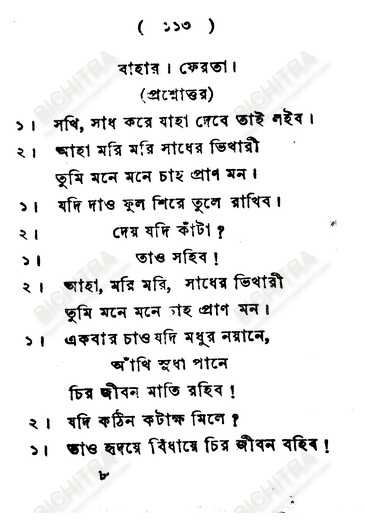 ( ১১৩ )
বাহার। ফেরতা।
(প্রশ্নোত্তর)
১। সখি, সাধ করে যাহা দেবে তাই লইব।
২। আহা মরি মরি সাধের ভিখারী
তুমি মনে মনে চাহ প্রাণ মন।
১। যদি দাও ফুল শিরে তুলে রাখিব।
২। দেয় যদি কাঁটা?
১। তাও সহিব!
২। আহা, মরি মরি, সাধের ভিখারী
তুমি মনে মনে চাহ প্রাণ মন।
১। একবার চাও যদি মধুর নয়ানে,
আঁখি সুধা পানে
চির জীবন মাতি রহিব!
২। যদি কঠিন কটাক্ষ মিলে?
১। তাও হৃদয়ে বিঁধায়ে চির জীবন বহিব!
৮
BICHITRA